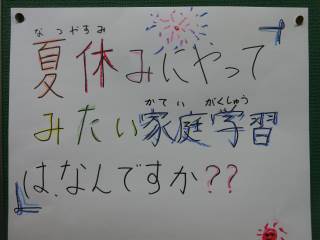 なつやすみ
夏休みにやって
かてい がくしゅう
みたい家庭学習
は、なんですか??